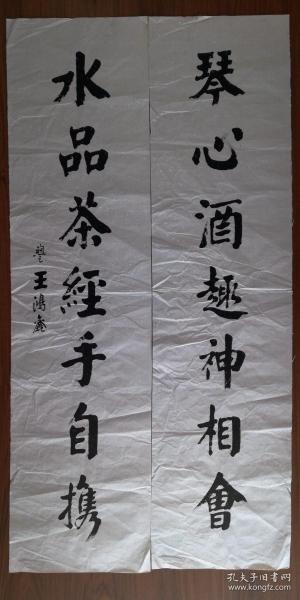 琴心酒趣神相會
水品茶經手自携
王鴻鑫
孔夫子旧书网